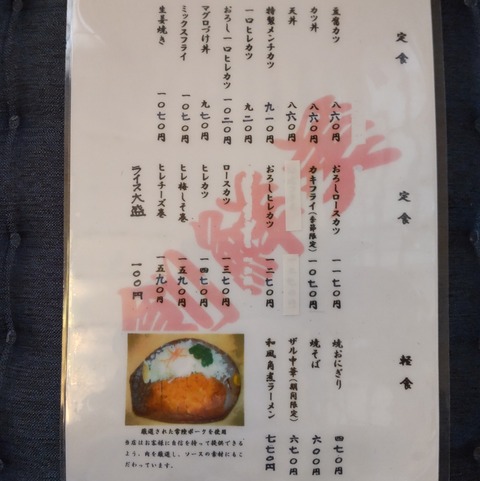 定食
豆腐カツ 八六〇円
カツ丼 八六〇円
天丼 八六〇円
特製メンチカツ 九一〇円
一口ヒレカツ 九二〇円
おろし一口ヒレカツ 一〇二〇円
マグロづけ丼 九七〇円
ミックスフライ 一〇七〇円
生姜焼き 一〇七〇円
定食
おろしロースカツ 一一七〇円
カキフライ(季節限定) 一〇七〇円
おろしヒレカツ 一二七〇円
ロースカツ 一三七〇円
ヒレカツ 一四七〇円
ヒレ梅しそ巻 一五九〇円
ヒレチーズ巻 一五九〇円
ライス大盛 一〇〇円
軽食
焼おにぎり 四七〇円
焼そば 六〇〇円
ザル中華(期間限定) 六七〇円
和風角煮ラーメン 七七〇円
厳選された常陸ポークを使用
当店はお客様に自信を持って提供できる
よう、肉を厳選し、ソースの素材にもこ
だわっています。